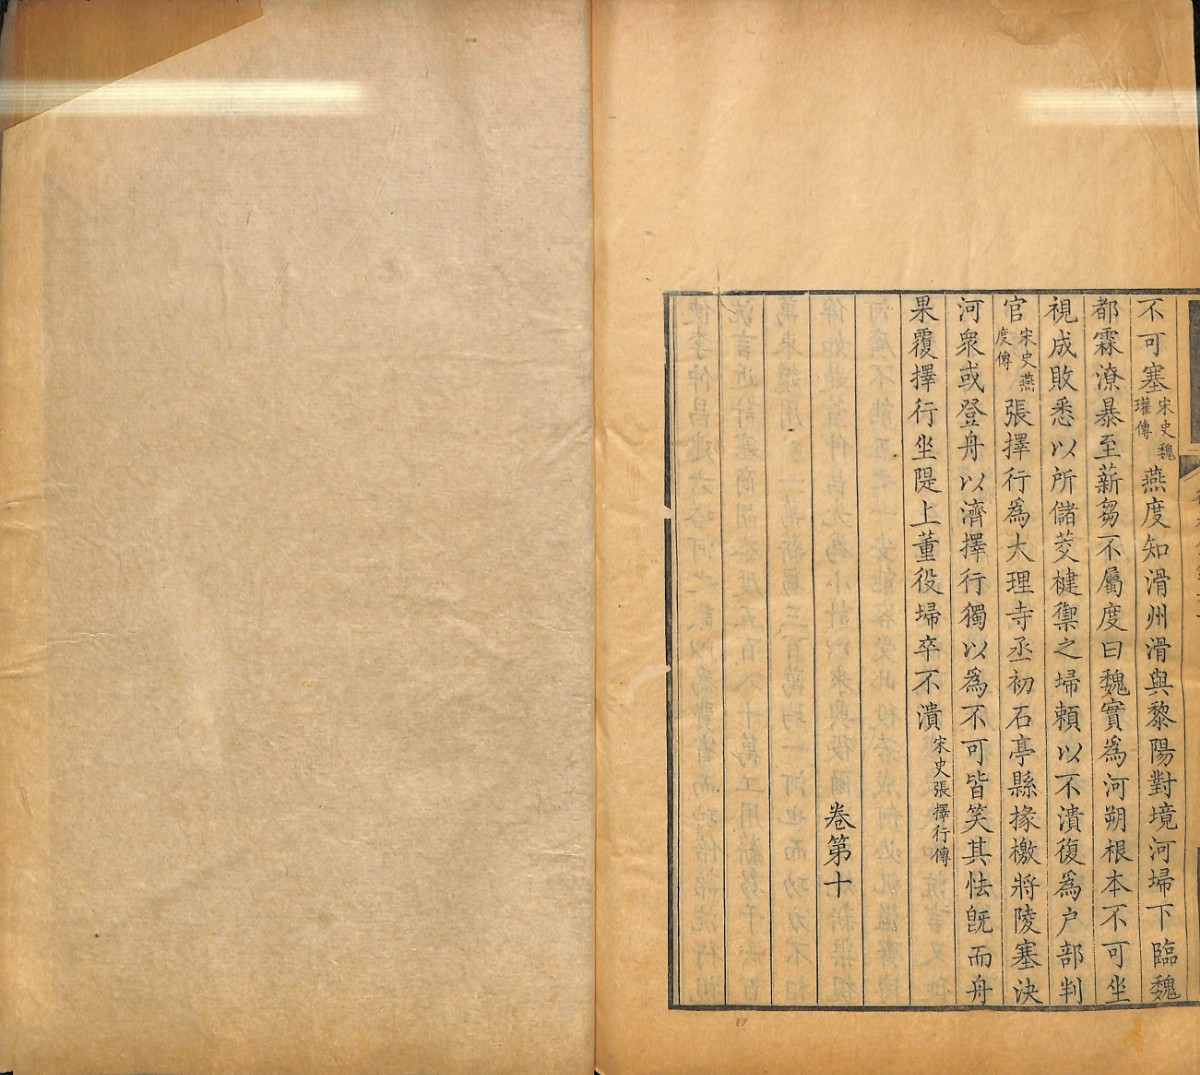 不可塞宋史魏瓘傳燕度知滑州滑與黎陽對境河埽下臨魏
都霖潦暴至薪芻不屬度曰魏實為河朔根本不可坐
視成敗悉以所儲茭楗禦之埽賴以不潰復為户部判
官宋史燕度傳張擇行為大理寺丞初石亭縣掾檄將陵塞決
河衆或登舟以濟擇行獨以為不可皆笑其怯旣而舟
果覆擇行坐隄上董役埽卒不潰宋史張擇行傳
卷第十